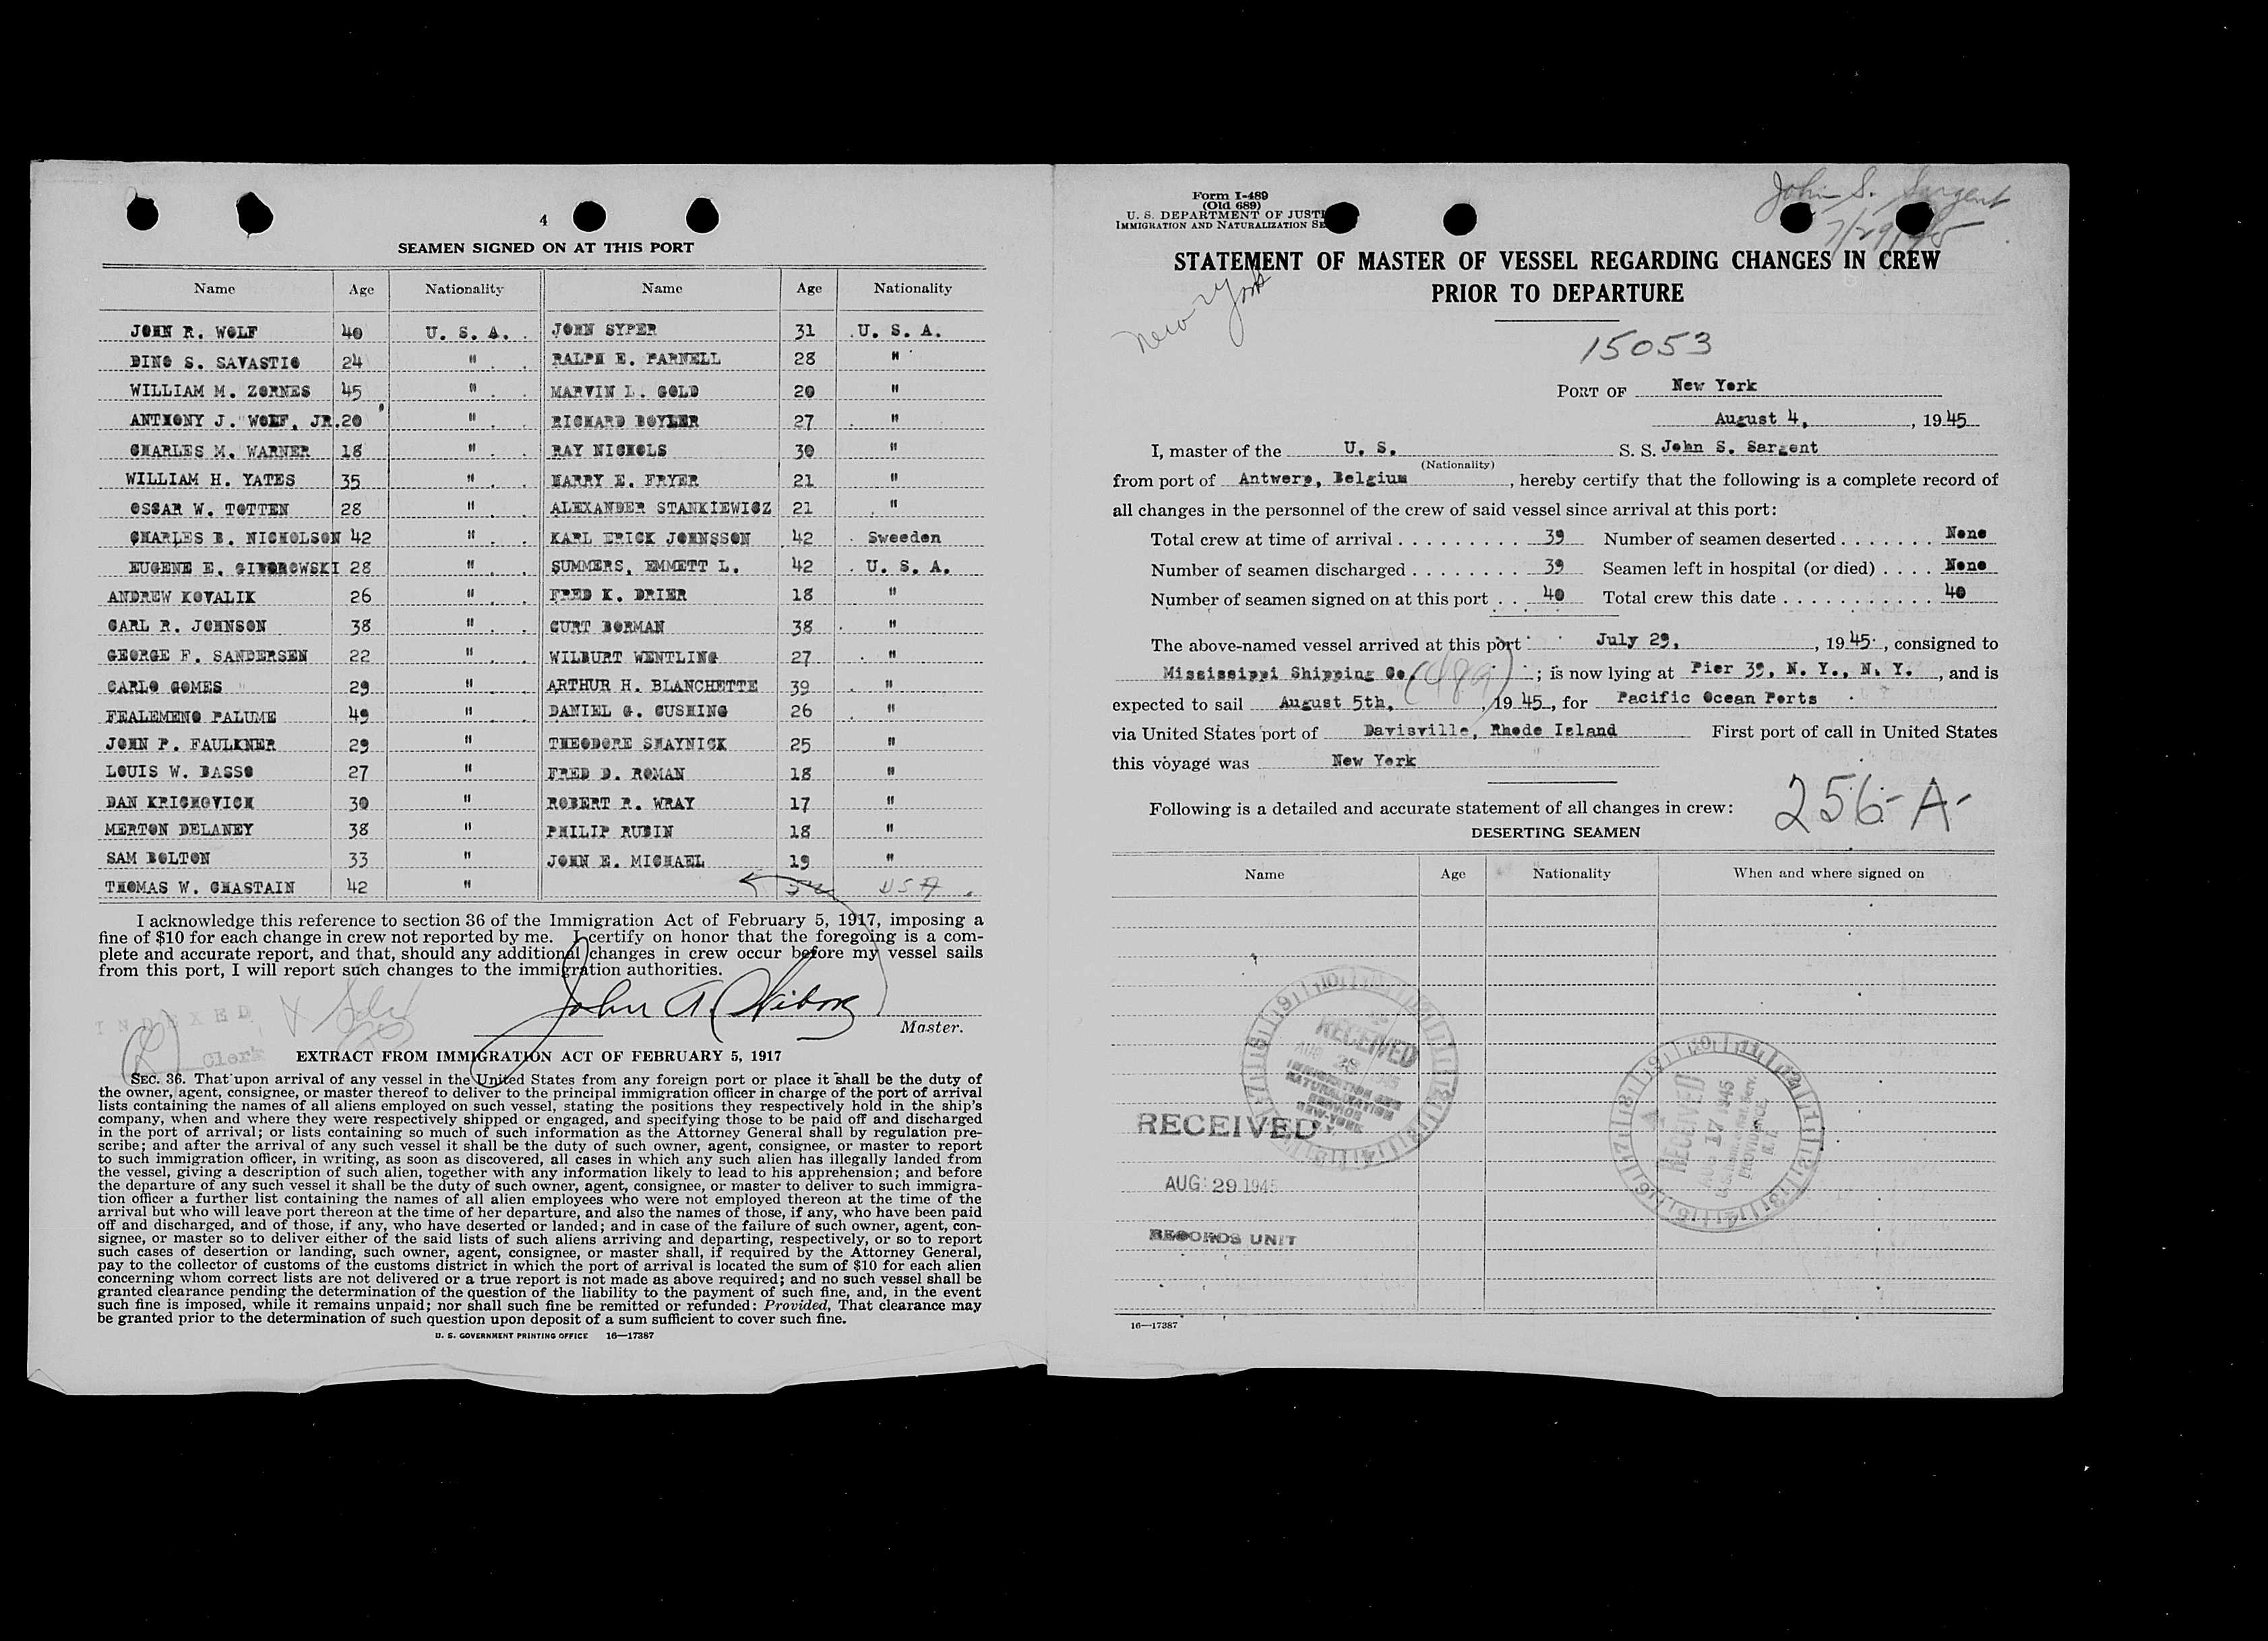 4
SEAMEN SIGNED ON AT THIS PORT
Name Age Nationality Name Age Nationality
JOHN R. WOLF 40 U. S. A. JOHN SYPER 31 U. S. A.
DINO S. SAVASTIO 24 " RALPH E. PARNELL 28 "
WILLIAM M. ZORNES 45 " MARVIN L. GOLD 20 "
ANTHONY J. WOLF, JR. 20 " RICHARD BOYLER 27 "
CHARLES M. WARNER 18 " RAY NICHOLS 30 "
WILLIAM H. YATES 35 " HARRY E. FRYER 21 "
OSSAR W. TOTTEN 28 " ALEXANDER STANKIEWICZ 21 "
CHARLES B. NICHOLSON 42 " KARL ERICK JOHNSSON 42 Sweeden
EUGENE E. GIBOROWSKI 28 " SUMMERS, EMMETT L. 42 U. S. A.
ANDREW KOVALIK 26 " FRED K. DRIER 18 "
CARL R. JOHNSON 38 " CURT BORMAN 38 "
GEORGE F. SANDERSEN 22 " WILBURT WENTLING 27 "
CARLO GOMES 29 " ARTHUR H. BLANCHETTE 39 "
FEALEMENO PALUME 49 " DANIEL G. CUSHING 26 "
JOHN P. FAULKNER 29 " THEODORE SHAYNICK 25 "
LOUIS W. BASSO 27 " FRED D. ROMAN 18 "
DAN KRICHOVICH 30 " ROBERT R. WRAY 17 "
MERTON DELANEY 38 " PHILIP RUBIN 18 "
SAM BOLTON 33 " JOHN E. MICHAEL 19 "
THOMAS W. CHASTAIN 42 " USA
I acknowledge this reference to section 36 of the Immigration Act of February 5, 1917, imposing a
fine of $10 for each change in crew not reported by me. I certify on honor that the foregoing is a com-
plete and accurate report, and that, should any additional changes in crew occur before my vessel sails
from this port, I will report such changes to the immigration authorities.
John A.
Master.
INDEXED
Clerk
EXTRACT FROM IMMIGRATION ACT OF FEBRUARY 5, 1917
SEC. 36. That upon arrival of any vessel in the United States from any foreign port or place it shall be the duty of
the owner, agent, consignee, or master thereof to deliver to the principal immigration officer in charge of the port of arrival
lists containing the names of all aliens employed on such vessel, stating the positions they respectively hold in the ship's
company, when and where they were respectively shipped or engaged, and specifying those to be paid off and discharged
in the port of arrival; or lists containing so much of such information as the Attorney General shall by regulation pre-
scribe; and after the arrival of any such vessel it shall be the duty of such owner, agent, consignee, or master to report
to such immigration officer, in writing, as soon as discovered, all cases in which any such alien has illegally landed from
the vessel, giving a description of such alien, together with any information likely to lead to his apprehension; and before
the departure of any such vessel it shall be the duty of such owner, agent, consignee, or master to deliver to such immigra-
tion officer a further list containing the names of all alien employees who were not employed thereon at the time of the
arrival but who will leave port thereon at the time of her departure, and also the names of those, if any, who have been paid
off and discharged, and of those, if any, who have deserted or landed; and in case of the failure of such owner, agent, con-
signee, or master so to deliver either of the said lists of such aliens arriving and departing, respectively, or so to report
such cases of desertion or landing, such owner, agent, consignee, or master shall, if required by the Attorney General,
pay to the collector of customs of the customs district in which the port of arrival is located the sum of $10 for each alien
concerning whom correct lists are not delivered or a true report is not made as above required; and no such vessel shall be
granted clearance pending the determination of the question of the liability to the payment of such fine, and, in the event
such fine is imposed, while it remains unpaid; nor shall such fine be remitted or refunded: Provided, That clearance may
be granted prior to the determination of such question upon deposit of a sum sufficient to cover such fine.
U. S. GOVERNMENT PRINTING OFFICE 16—17387
Form I-489
(Old 689)
U. S. DEPARTMENT OF JUSTI
IMMIGRATION AND NATURALIZATION SE
John S. Sargent
7/29/45
STATEMENT OF MASTER OF VESSEL REGARDING CHANGES IN CREW
PRIOR TO DEPARTURE
New York
15053
PORT OF New York
August 4, , 19 45
I, master of the U. S. S. S. John S. Sargent
(Nationality)
from port of Antwerp, Belgium , hereby certify that the following is a complete record of
all changes in the personnel of the crew of said vessel since arrival at this port:
Total crew at time of arrival . . . . . . . . . . 39 Number of seamen deserted . . . . . . . None
Number of seamen discharged . . . . . . . . 39 Seamen left in hospital (or died) . . . . None
Number of seamen signed on at this port . . 40 Total crew this date . . . . . . . . . . . 40
The above-named vessel arrived at this port July 29, , 19 45 , consigned to
Mississippi Shipping Co. (489) ; is now lying at Pier 39, N. Y., N. Y. , and is
expected to sail August 5th, , 19 45 , for Pacific Ocean Ports
via United States port of Davisville, Rhode Island First port of call in United States
this voyage was New York
Following is a detailed and accurate statement of all changes in crew:
256-A-
DESERTING SEAMEN
Name Age Nationality When and where signed on
RECEIVED
AUG 28 1945
IMMIGRATION AND
NATURALIZATION
SERVICE
NEW-YORK
N.Y.
RECEIVED
AUG 17 1945
PROVIDENCE
R. I.
RECEIVED
AUG 29 1945
RECORDS UNIT
16—17387